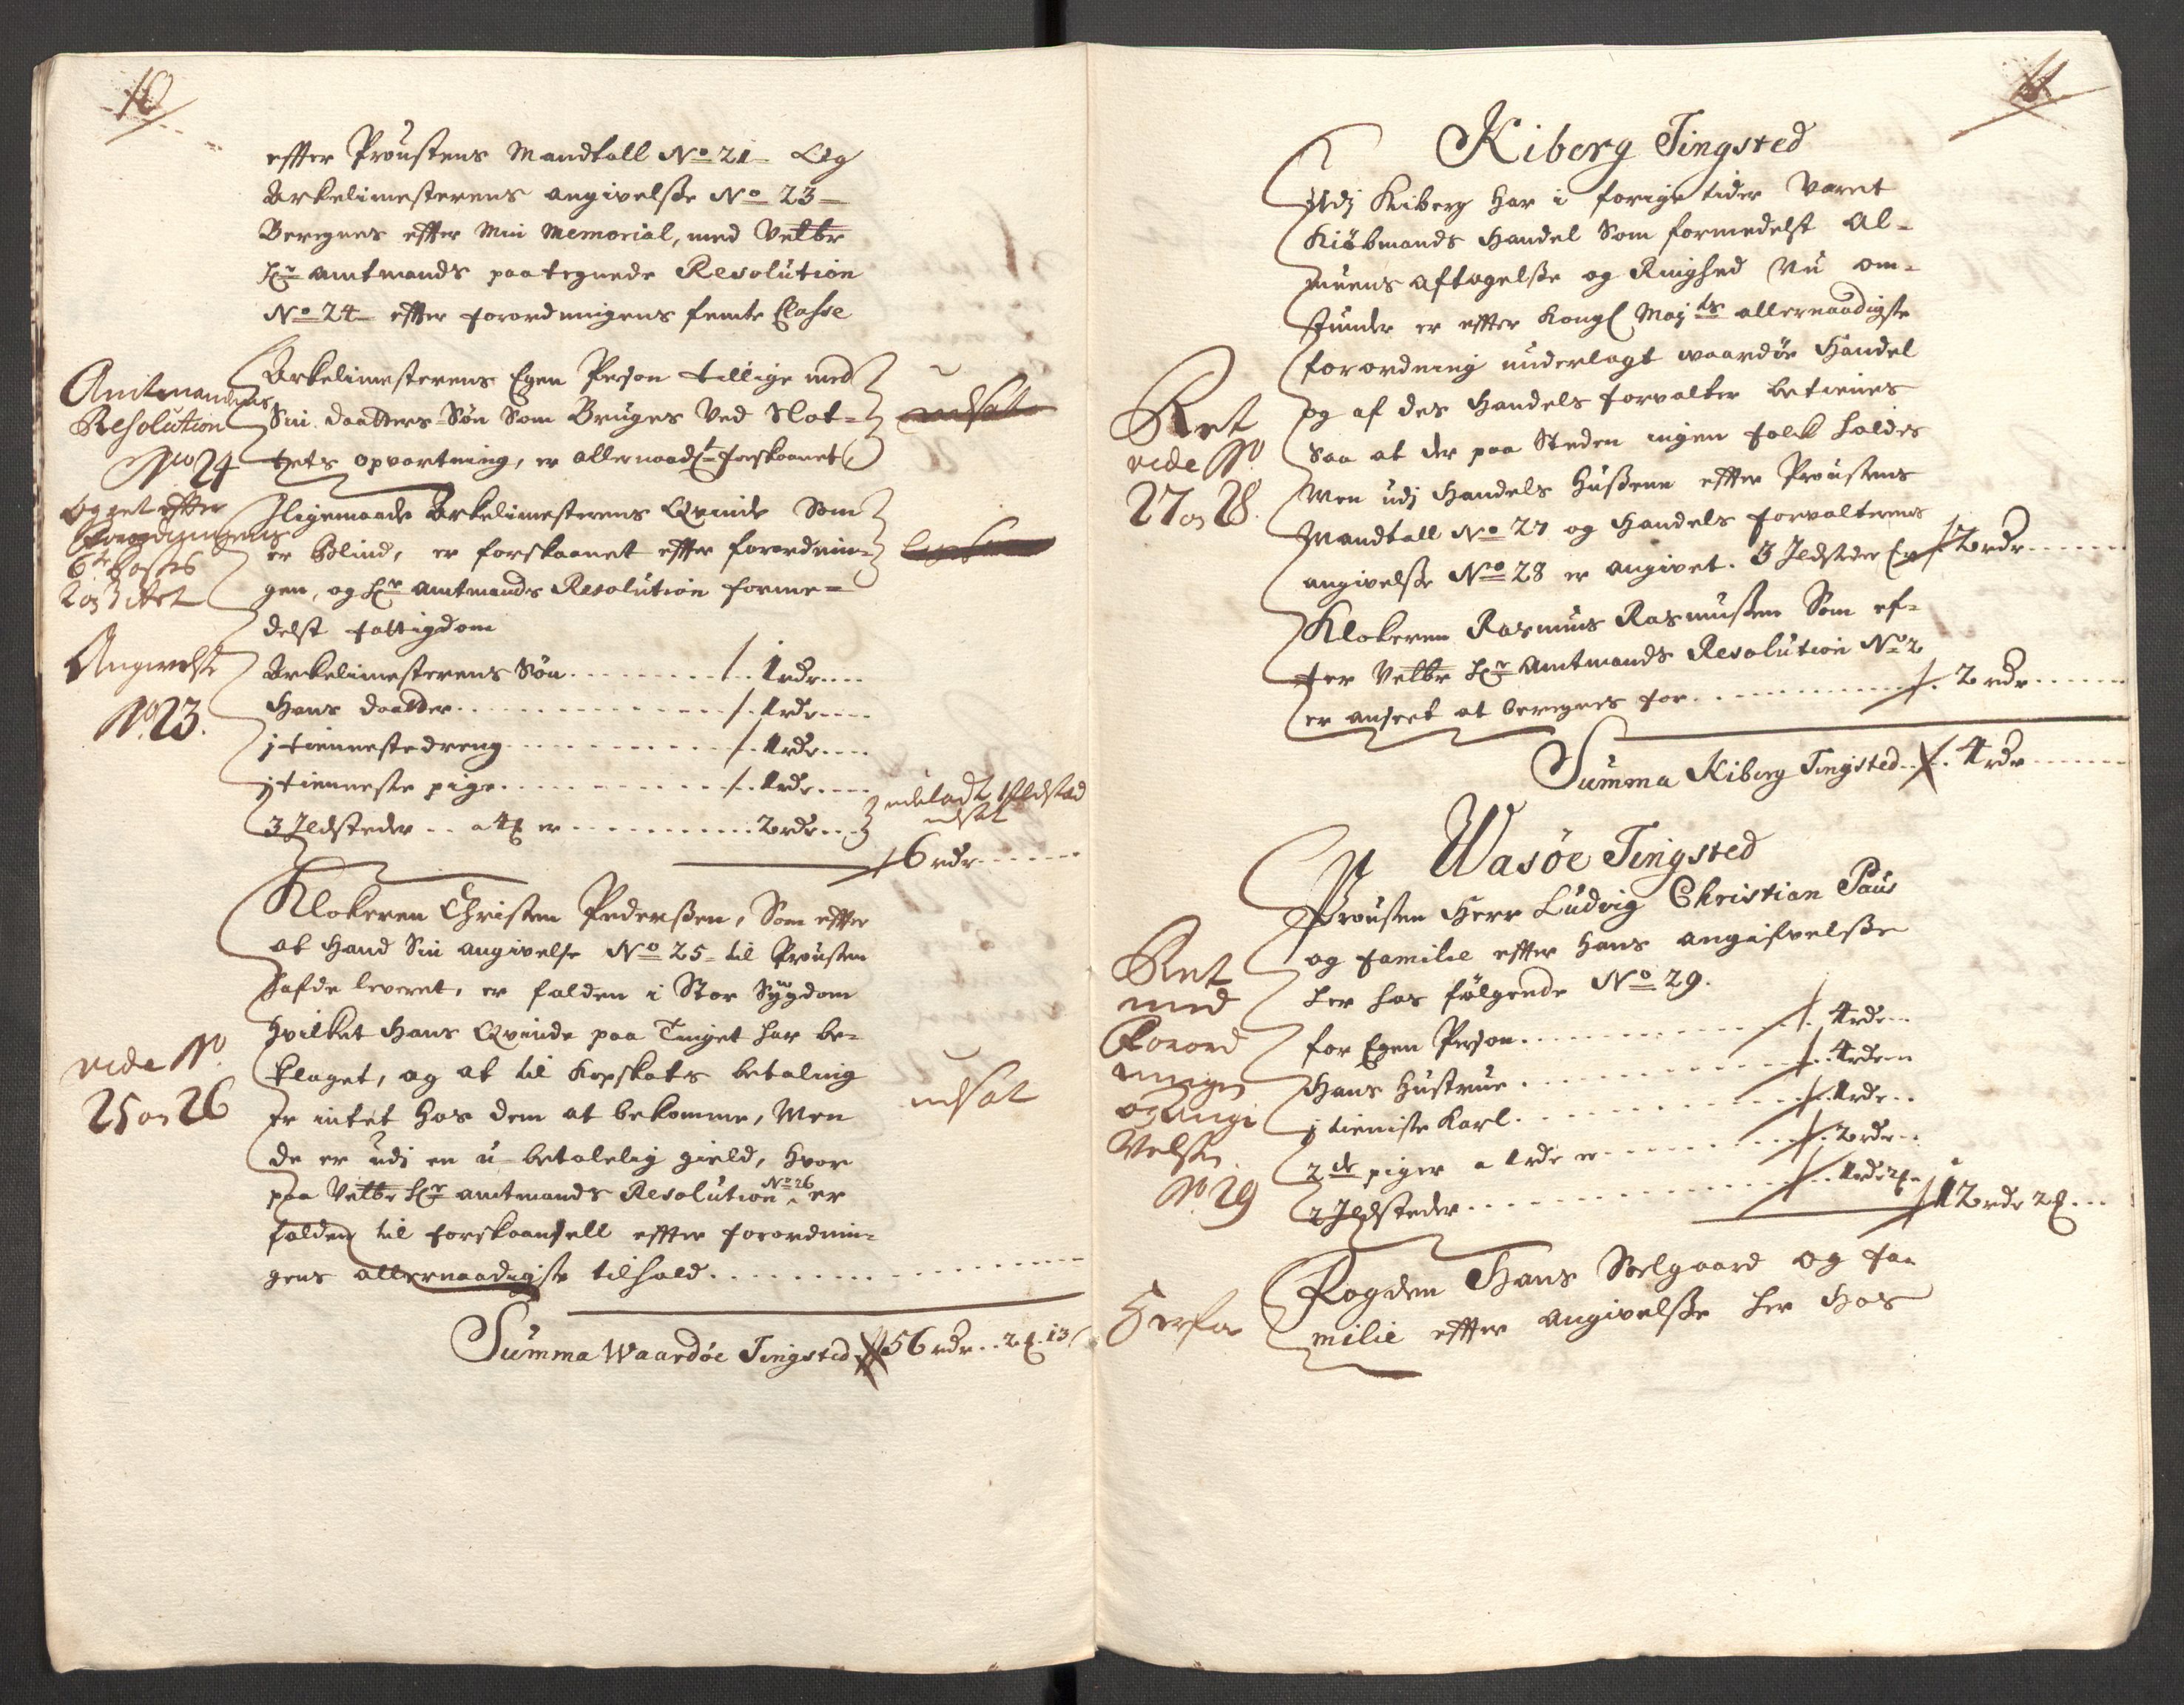 10
effter Proustens Mandtall No 21 Og
Arkelimesterens angivelsse No 23
Beregnes effter Min Memorial, med Velbr
Hr amtmands paategnede Resolution
No 24 effter forordningens femte Classe
Amtmandens
Resolution
No 24
og ret effter
Forordningens
2 og 3 Art
Arkelimesterens Egen Person tillige med
Sin daatters Søn Som Bruges Ved Slot-
tets opvartning, er allernaadst forskaanet
udsat
Iligemaade Arkelimesterens Qvinde Som
er Blind, er forskaanet effter forordnin-
gen, og Hr amtmands Resolution forme-
delst fattigdom
Angivelsse
No 23.
Arkelimesterens Søn . . . 1 rdr
Hans daatter . . . 1 rdr
j tienneste dreng . . . 1 rdr
j tienneste pige . . . 1 rdr
3 Jldsteder . . a 4 er . . . 2 rdr
udsat
6 rdr
vide No
25 og 26
Klokeren Christen Pederssen, Som effter
at Hand Sin angivelse No 25 til Prousten
hafde leveret, er falden i Stor Sygdom
hvilket Hans Qvinde paa Tinget har be-
klaget, og at til Kopskats betaling
er intet hos dem at bekomme, Men
de er udj en u-betalelig gield, hvor
paa Velbr Hr amtmands Resolution No 26 er
falden til forskaansell effter forordnin-
gens allernaadigste tilhold . . .
udsat
Summa Waardøe Tingsted 56 rdr . . 2 . 13
11
Kiberg Tingsted
Udj Kiberg har i forige tider Varet
Kiøbmands Handel Som formedelst Al-
muens aftagelsse og Ringhed Nu om-
stunder er effter Kongl Mayts allernaadigste
forordning underlagt waardøe Handel
og af des Handels forvalter betienes
Saa at der paa Steden ingen folck holdes
Men udj Handels Hussene effter Proustens
Mandtall No 27 og Handels forvalterens
angivelsse No 28 er angivet. 3 Jldsteder Er 2 rdr
Ret
vide No
27 og 28.
Klokeren Rasmus Rasmussen Som ef-
ter Velbr Hr Amtmands Resolution No 2
er anseet at beregnes for . . . 2 rdr
Summa Kiberg Tingsted . . 4 rdr
Wasøe Tingsted
Prousten Herr Ludvig Christian Paus
og familie effter Hans angifvelsse
her hos følgende No 29.
Ret
med
Forord
ningen
og Angi
Velssen
No 29
for Egen Person . . . 4 rdr
Hans Hustrue . . . 4 rdr
j tieniste Karl . . . 1 rdr
2 de piger a 1 rdr er . . . 2 rdr
2 Jldsteder . . . 1 rdr 2
12 rdr 2
Fogden Hans Soelgaard og fa-
milie effter angivelsse her hos